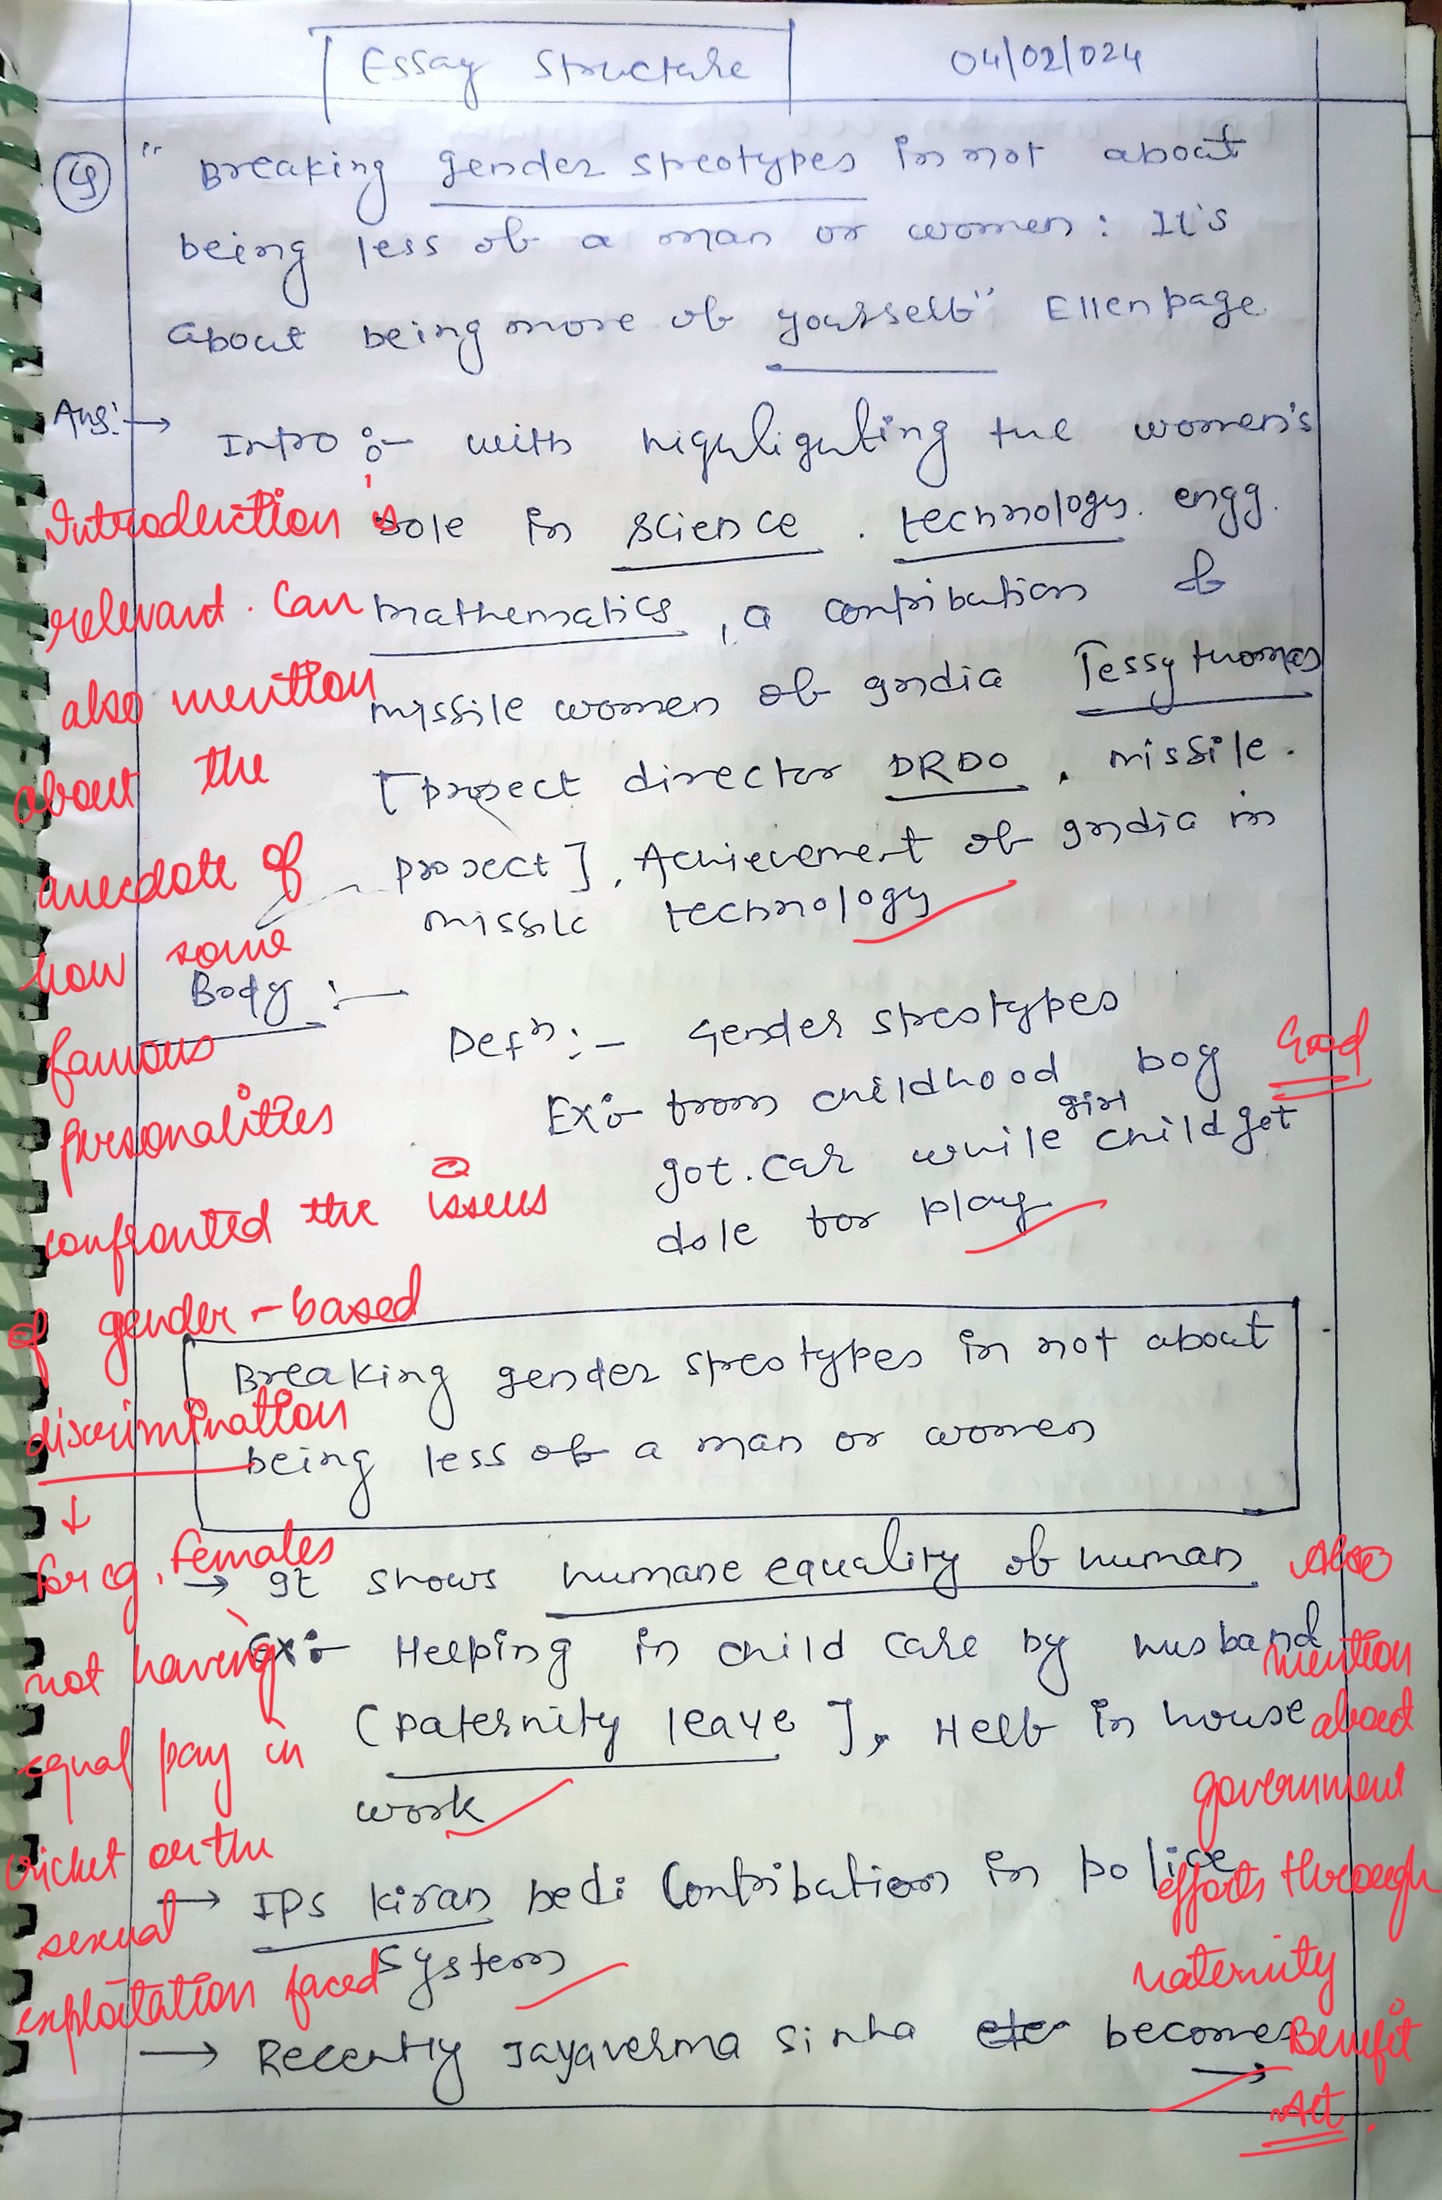 Essay Structure
04/02/024
(4) " Breaking gender streotypes is not about
being less of a man or women : It's
about being more of yourself" Ellen page
Ans:→ Intro :- with highlighting the women's
role in science, technology, engg.
mathematics, a contribution of
missile women of India Tessy thomas
[project director DRDO, missile.
project], Achievement of India in
missile technology
Body :—
Defn :- Gender streotypes
Ex:- from childhood boy
got car while girl child get
dole for play
Breaking gender streotypes is not about
being less of a man or women
→ It shows humane equality of human
Ex:- Helping in child care by husband
(paternity leave], Help in house
work
→ IPS kiran bedi contribution in police
system
→ Recently Jayaverma sinha becomes
→
Introduction is
relevant. Can
also mention
about the
anecdote of
how some
famous
personalities
confronted the issues
of gender-based
discrimination
↓
for eg, females
not having
equal pay in
cricket or the
sexual
exploitation faced
Good
Also
mention
about
government
efforts through
maternity
Benefit
Act.